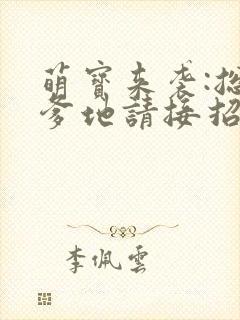 萌寶來袭:總
爹地請接招
李佩雲